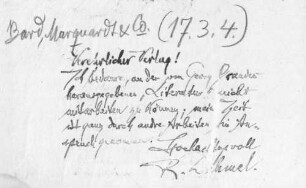 Bard, Marquardt & Co. (17.3.4.)
Verehrlicher Verlag!
Ich bedaure, an der von Georg Brandes
herausgegebenen Literatur nicht
mitarbeiten zu können; meine Zeit
ist ganz durch andre Arbeiten in An-
spruch genommen.
Hochachtungsvoll
R. Dehmel.